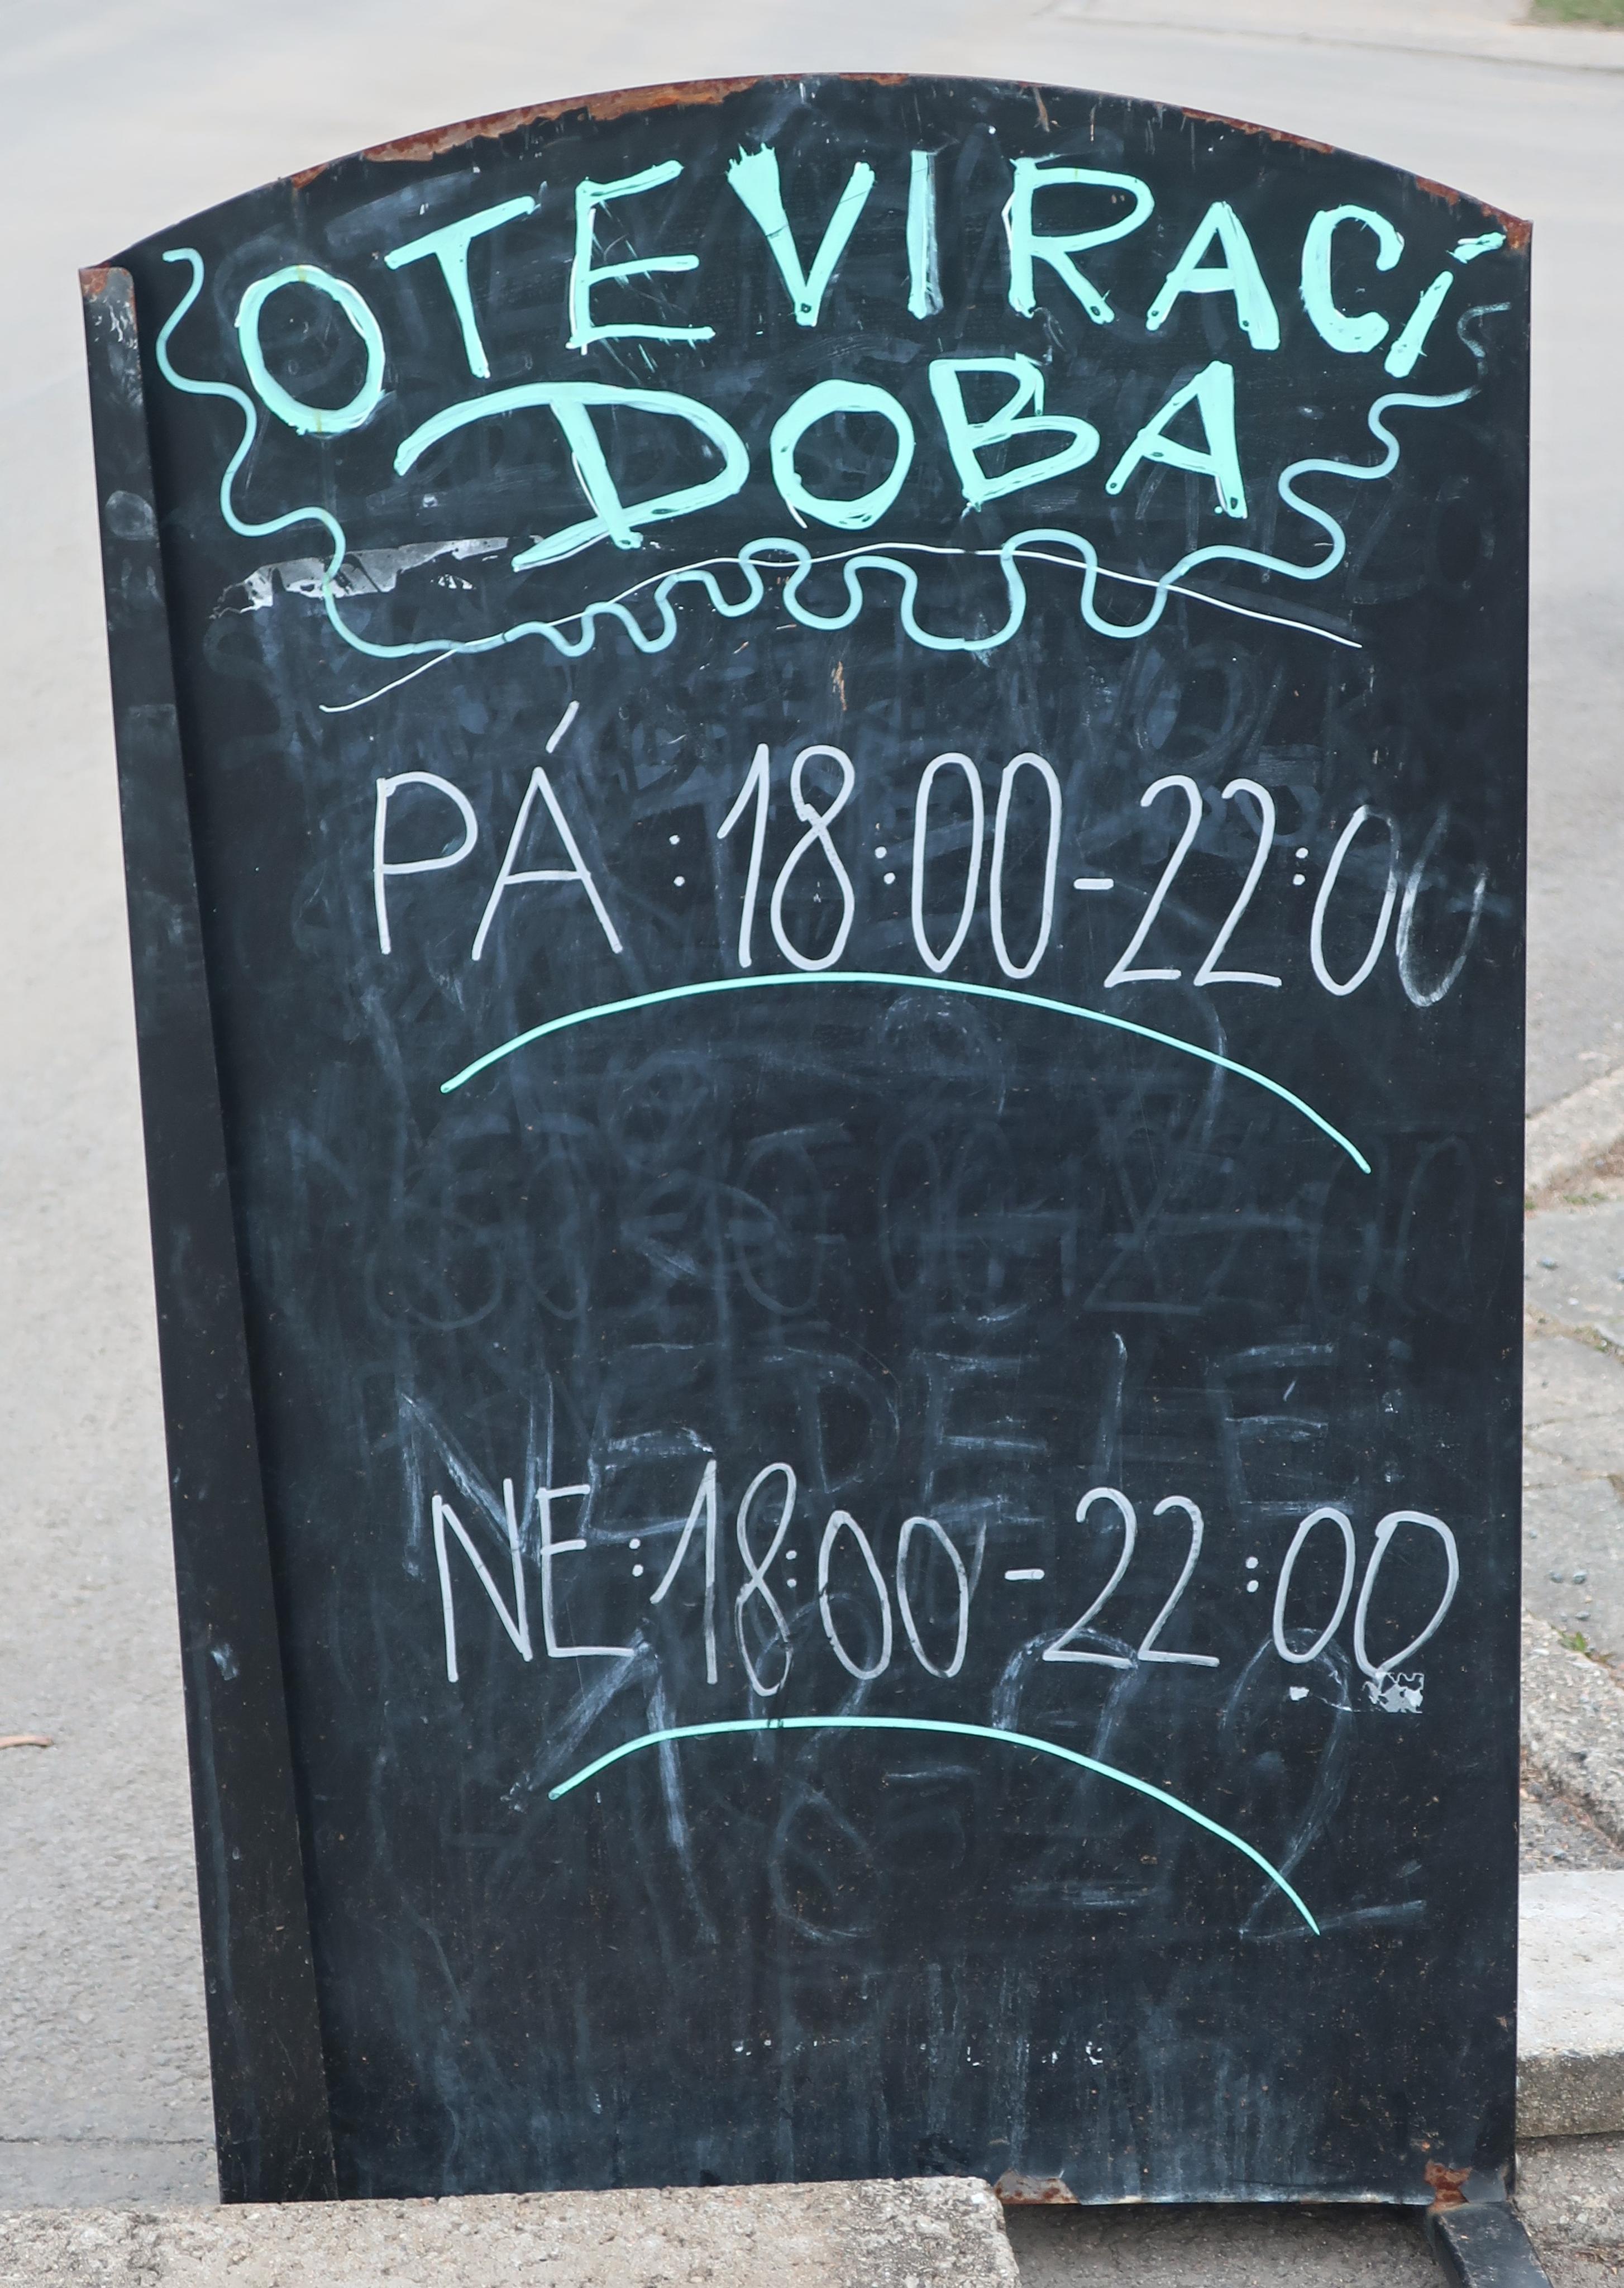 OTEVIRACÍ
DOBA
PÁ : 18:00-22:00
NEDELE
NE:18:00-22:00